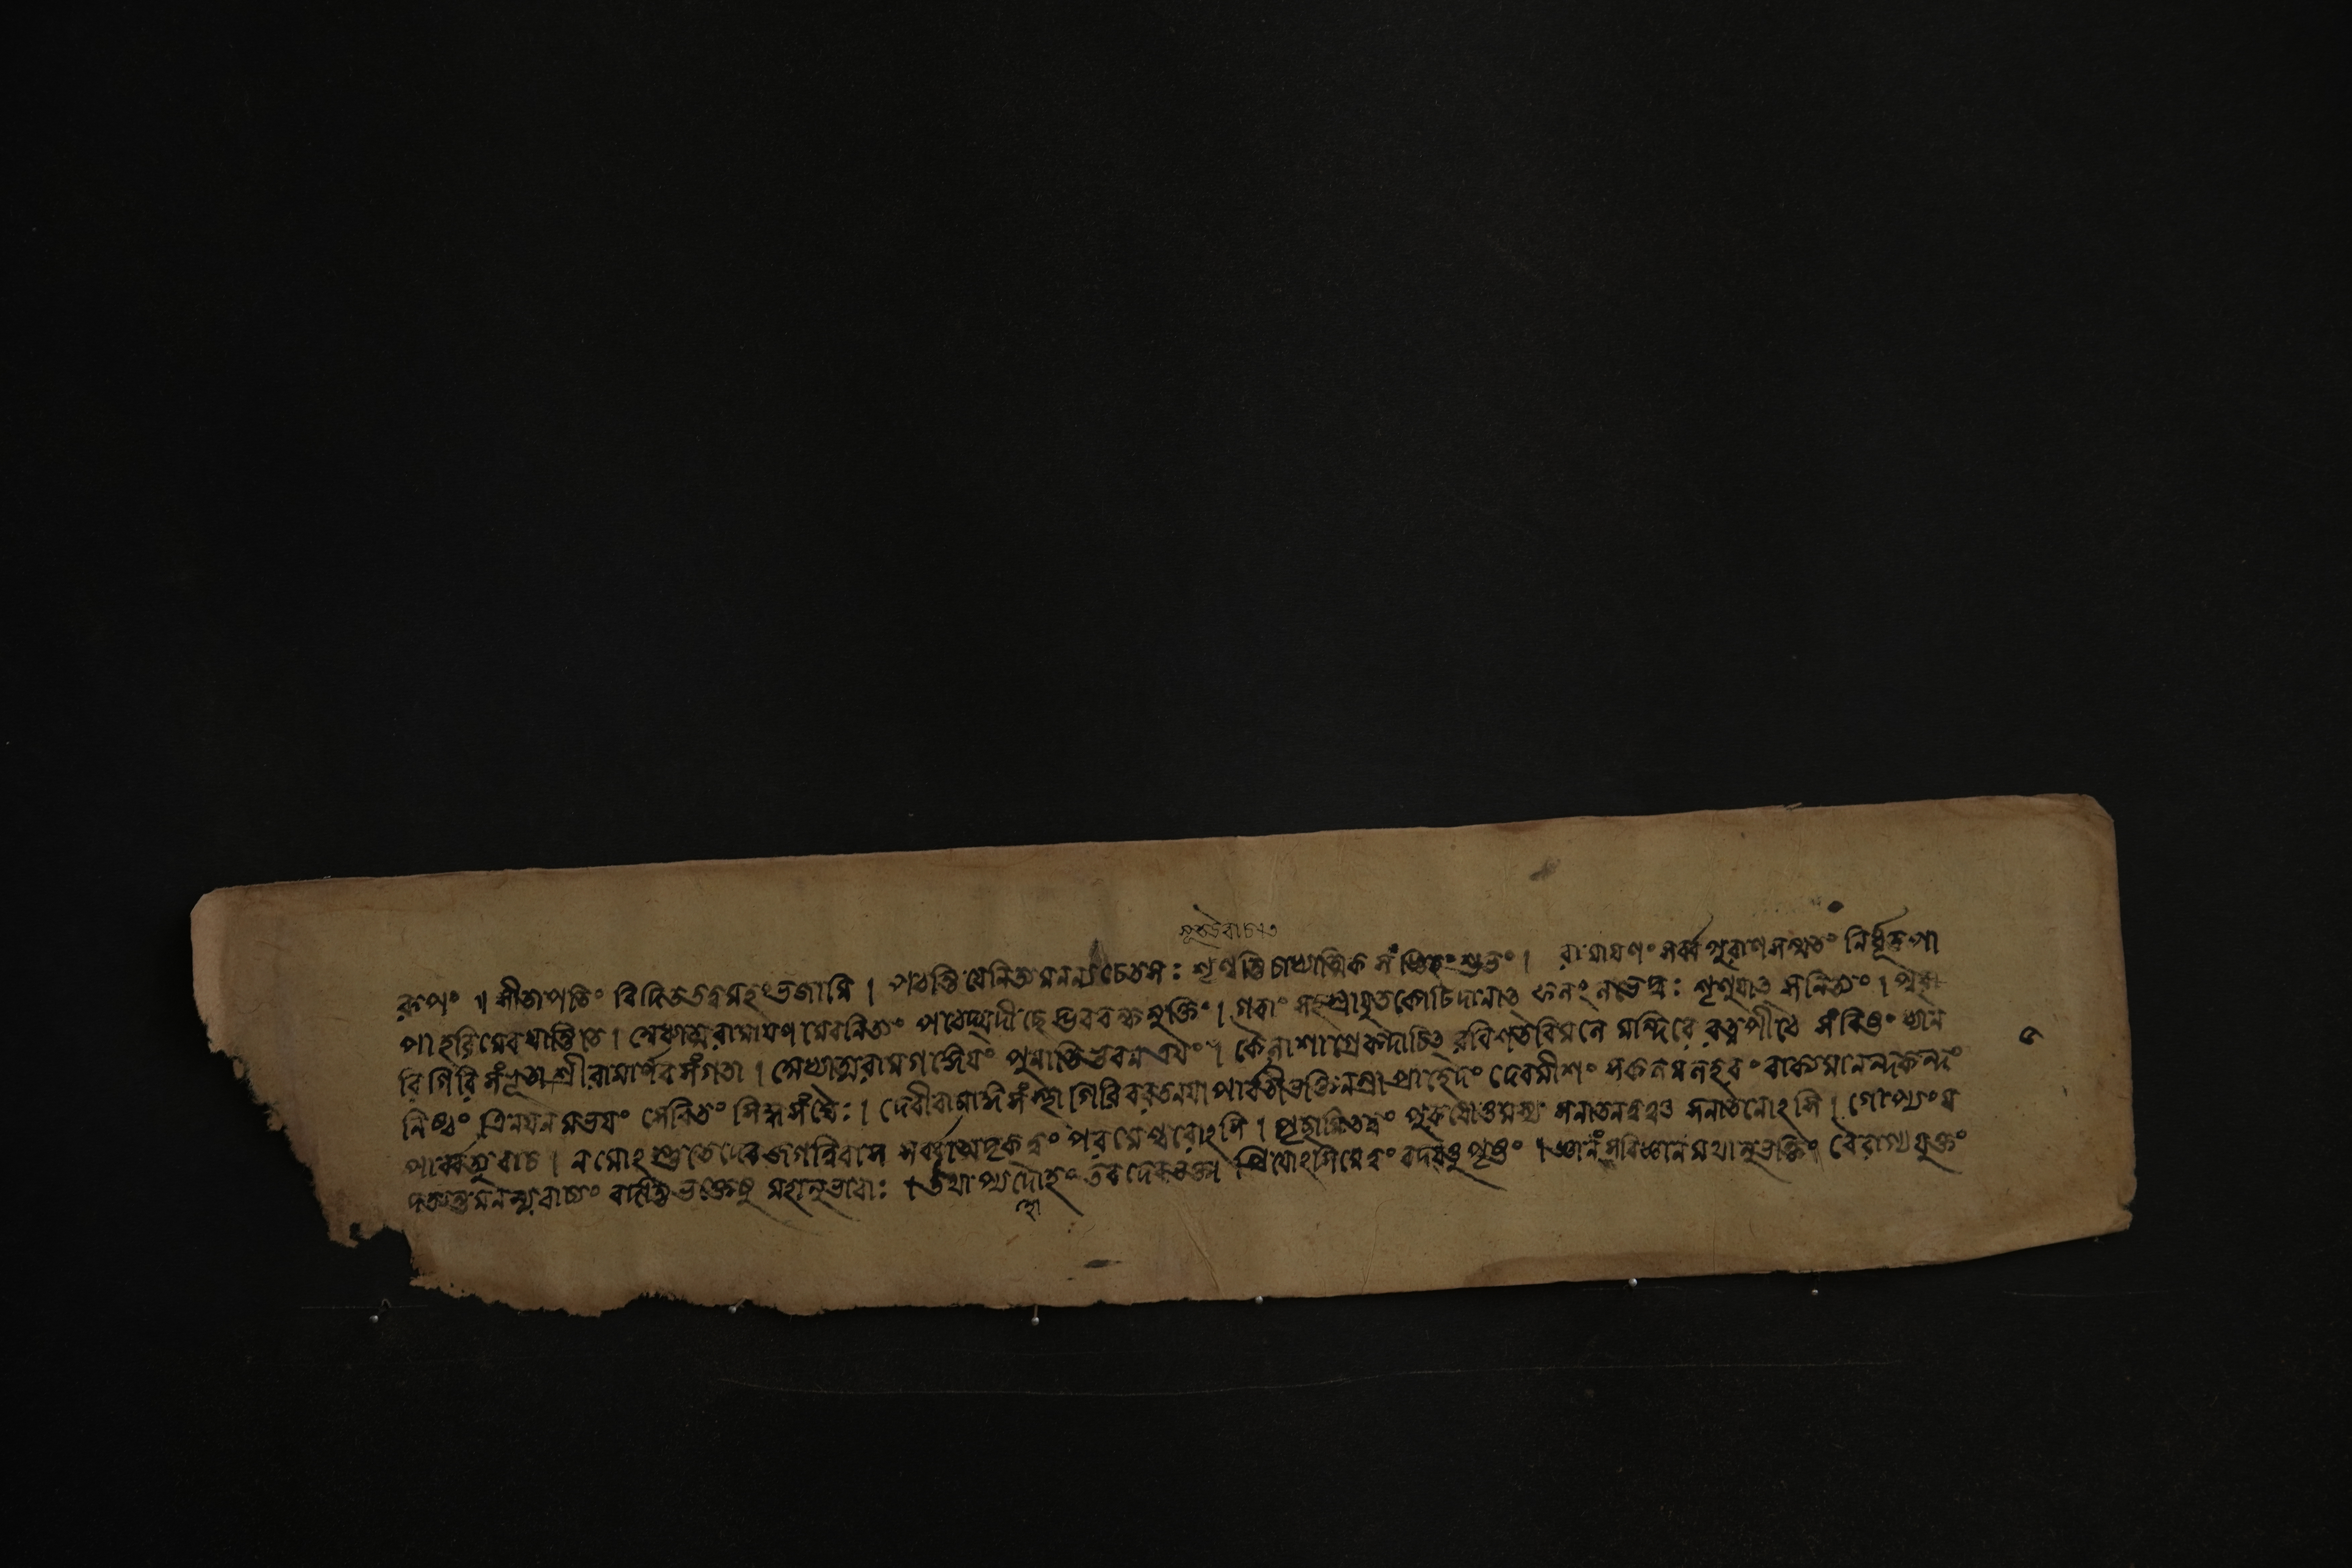 সূতউবাচাত
রূপং ॥ সীতাপতিং বিদিততত্ত্বমহংভজামি । পঠন্তি যেনিত্যমনন্যচেতসঃ শৃণ্বন্তিচাধ্যাত্মিক সংজ্ঞিতং শুভং । রামাযণং সর্ব্বপুরাণসম্মতং নির্ধূতপা
পাহরিমেবযান্তিতে । অধ্যাত্মরামাযণমেবনিত্যং পঠেদ্যদীচ্ছেদ্ভববন্ধমুক্তিং । গবাং সহস্রাযুতকোটিদানাৎ ফলংলভেদ্যঃ শৃণুযাৎ সনিত্যং । পুরা
রিগিরিসংভূতা শ্রীরামার্ণবসংগতা । অধ্যাত্মরামগঙ্গেযং পুনাতিভুবনত্রযং । কৈলাশাগ্রেকদাচিৎ রবিশতবিমলে মন্দিরে রত্নপীঠে সংবিষ্টং ধ্যান
নিষ্ঠং ত্রিনযনমভযং সেবিতং সিদ্ধসংঘৈঃ । দেবীবামাঙ্গসংস্থা গিরিবরতনযা পার্বতীভক্তিনম্রা প্রাহেদং দেবমীশং সকলমলহরং বাক্যমানন্দকন্দং
পার্ব্বত্যুবাচ । নমোংস্তুতেদেবজগন্নিবাস সর্ব্বাত্মদৃকত্বং পরমেশ্বরোংসি । পৃছামিতত্ত্বং পুরুষোত্তমস্য সনাতনত্বঞ্চ সনাতনোংসি । গোপ্যংয
দত্যন্তমনন্যবাচ্যং বদন্তিভক্তেষু মহানুভাবাঃ । তথাপ্যহোহং তবদেবভক্তা প্রিযোংসিমেত্বং বদযত্তুপৃষ্টং । জ্ঞানংসবিজ্ঞানমথানুভক্তিং বৈরাগ্যযুক্তং
৫